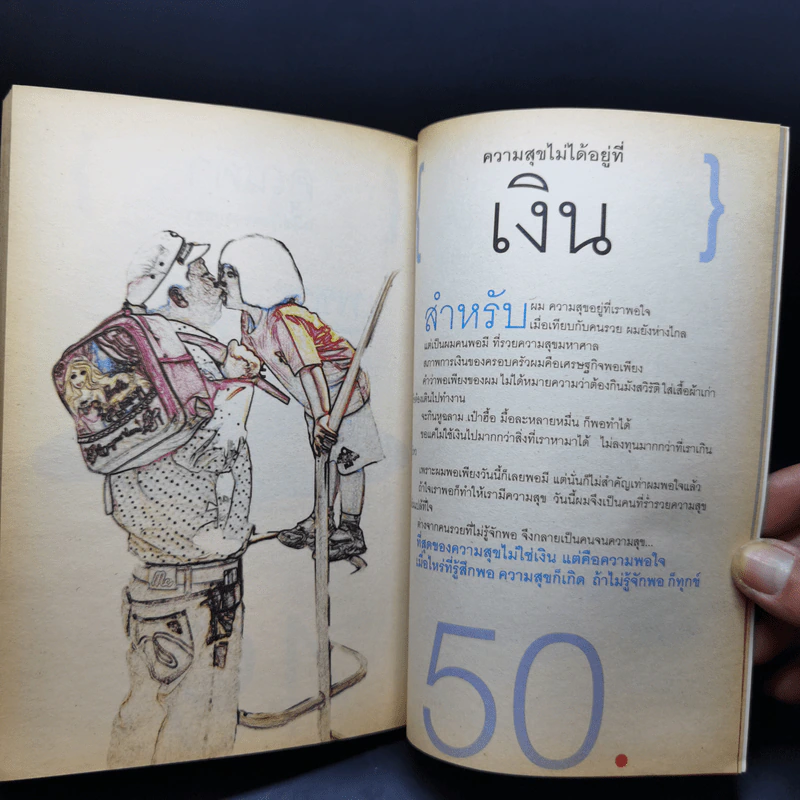 ความสุขไม่ได้อยู่ที่
{ เงิน }
สำหรับ ผม ความสุขอยู่ที่เราพอใจ
เมื่อเทียบกับคนรวย ผมยังห่างไกล
แต่เป็นผมคนพอมี ที่รวยความสุขมหาศาล
สภาพการเงินของครอบครัวผมคือเศรษฐกิจพอเพียง
คำว่าพอเพียงของผม ไม่ได้หมายความว่าต้องกินมังสวิรัติ ใส่เสื้อผ้าเก่า
เดินไปทำงาน
จะกินหูฉลาม เป๋าฮื้อ มื้อละหลายหมื่น ก็พอทำได้
ขอแค่ไม่ใช้เงินไปมากกว่าสิ่งที่เราหามาได้ ไม่ลงทุนมากกว่าที่เราเกิน
เพราะผมพอเพียงวันนี้ก็เลยพอมี แต่นั่นก็ไม่สำคัญเท่าผมพอใจแล้ว
ถ้าใจเราพอก็ทำให้เรามีความสุข วันนี้ผมจึงเป็นคนที่ร่ำรวยความสุข
ต่างจากคนรวยที่ไม่รู้จักพอ จึงกลายเป็นคนจนความสุข...
ที่สุดของความสุขไม่ใช่เงิน แต่คือความพอใจ
เมื่อไหร่ที่รู้สึกพอ ความสุขก็เกิด ถ้าไม่รู้จักพอ ก็ทุกข์
50.